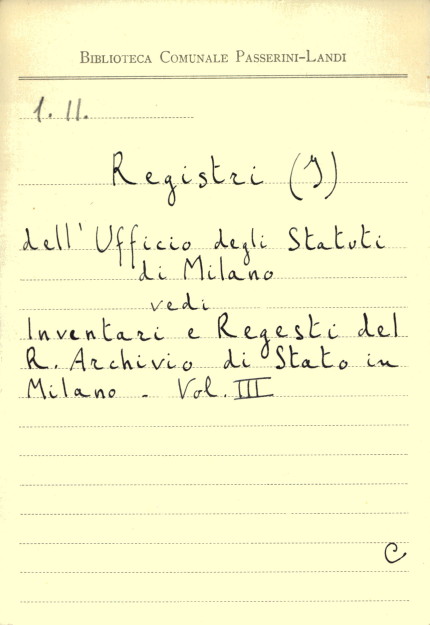 Biblioteca Comunale Passerini-Landi
1. II.
Registri (I)
dell' Ufficio degli Statuti
di Milano
vedi
Inventari e Regesti del
R. Archivio di Stato in
Milano - Vol. III
C